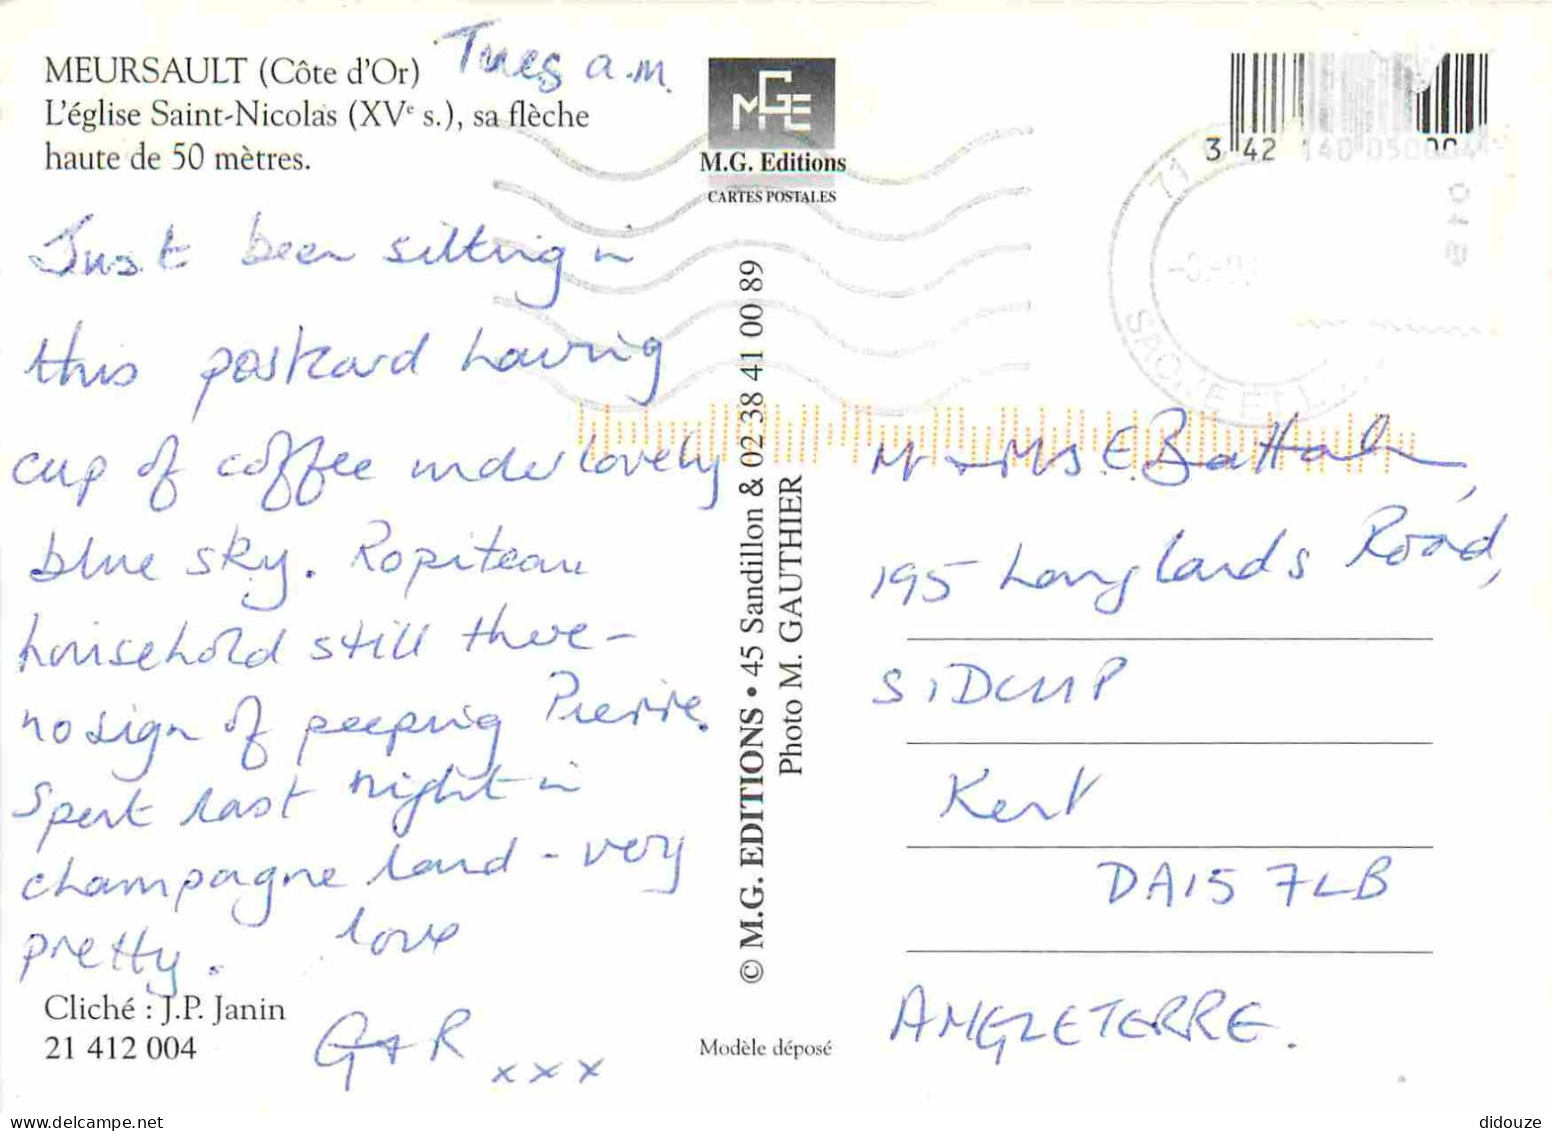 MEURSAULT (Côte d'Or)
L'église Saint-Nicolas (XVe s.), sa flèche
haute de 50 mètres.
Tues a.m.
MGE
M.G. Editions
CARTES POSTALES
3 42 140 050004
71
SAONE ET L
Just been sitting in
this postcard having
cup of coffee under lovely
blue sky. Ropiteau
household still there –
no sign of peeping Pierre.
Spent last night in
champagne land – very
pretty. love
G + R
x x x
Cliché : J.P. Janin
21 412 004
© M.G. EDITIONS • 45 Sandillon & 02 38 41 00 89
Photo M. GAUTHIER
Modèle déposé
Mr + Mrs E.
195 Longlands Road,
SIDCUP
Kent
DA15 7LB
ANGLETERRE.
didouze